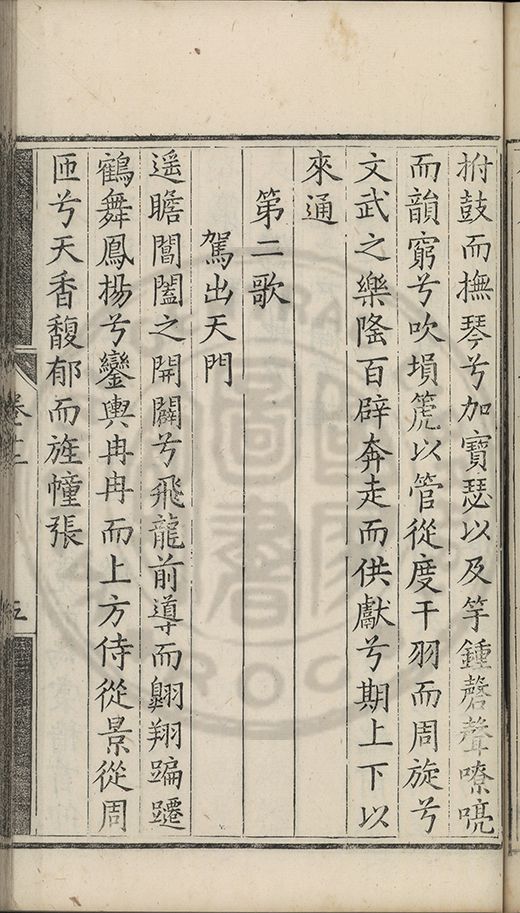 拊鼓而撫琴兮加寶瑟以及竽鍾磬聲嘹喨
而韻窮兮吹塤箎以管從度干羽而周旋兮
文武之樂隆百辟奔走而供獻兮期上下以
來通
第二歌
駕出天門
遥瞻閶闔之開闢兮飛龍前導而翺翔蹁躚
鶴舞鳳揚兮鑾輿冉冉而上方侍從景從周
匝兮天香馥郁而旌幢張